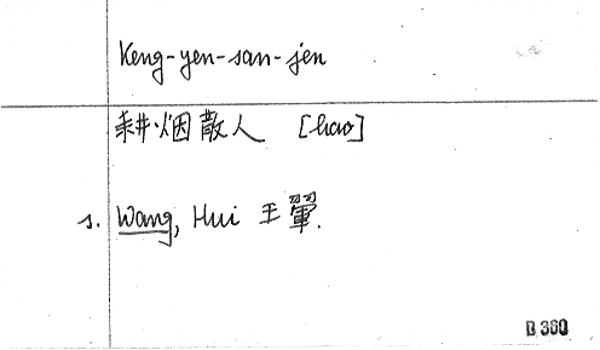 Keng-yen-san-jen
耕烟散人 [hao]
s. Wang, Hui 王翬.
B 360